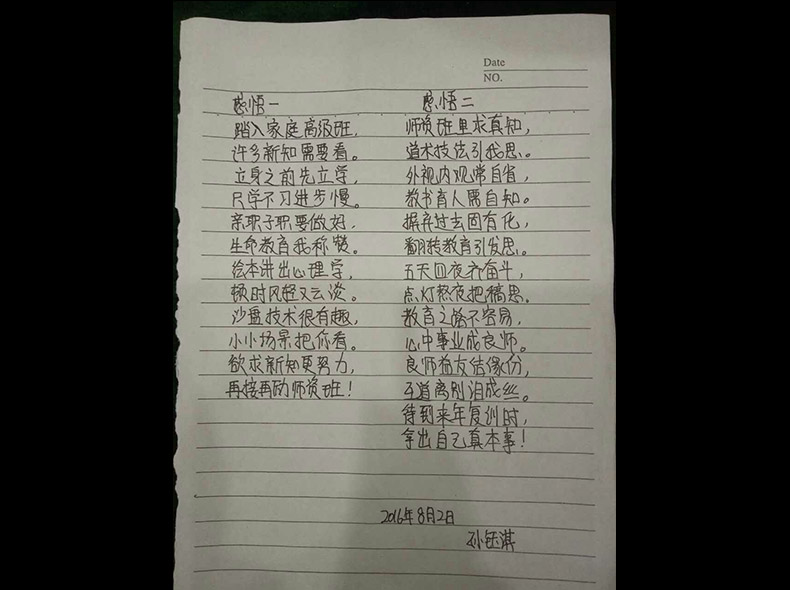 Date
NO.
感悟一
踏入家庭高级班，
许多新知需要看。
立身之前先立学，
只学不习进步慢。
亲职子职要做好，
生命教育我称赞。
绘本讲出心理学，
顿时风轻又云淡。
沙盘技术很有趣，
小小场景把你看。
欲求新知更努力，
再接再励师资班！
感悟二
师资班里求真知，
道术技法引我思。
外视内观常自省，
教书育人需自知。
摒弃过去固有化，
翻转教育引发思。
五天四夜齐奋斗，
点灯熬夜把稿思。
教育之路不容易，
心中事业成良师。
良师益友结缘份，
互道离别泪成丝。
待到来年复训时，
拿出自己真本事！
2016年8月2日
孙钰淇